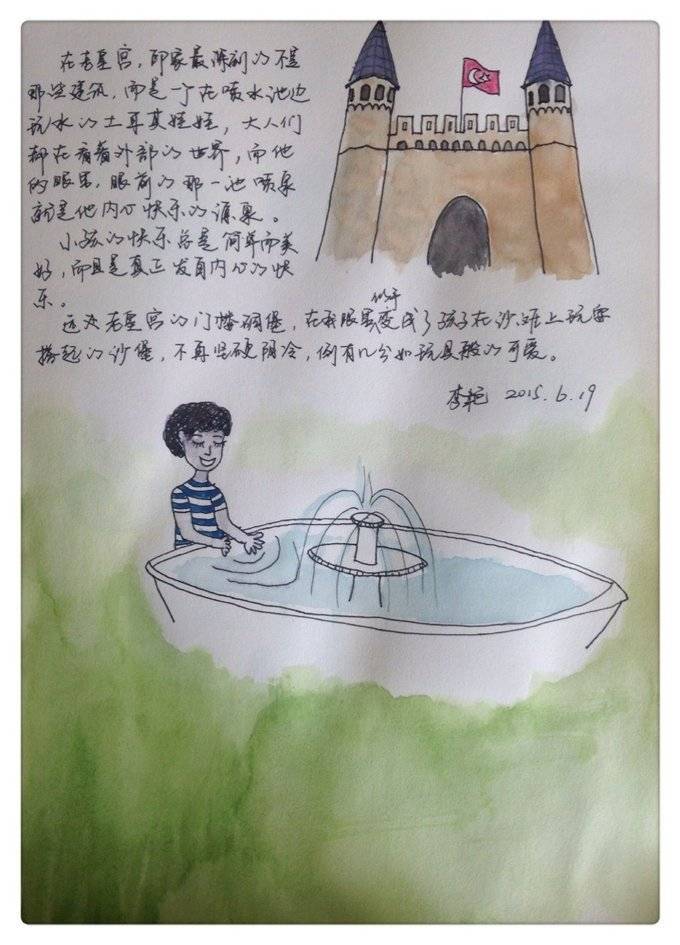 在老皇宫，印象最深刻的不是
那些建筑，而是一个在喷水池边
玩水的土耳其娃娃，大人们
都在看着外部的世界，而他
的眼里，眼前的那一池喷泉
就是他内心快乐的源泉。
小孩的快乐总是简单而美
好，而且是真正发自内心的快
乐。
似乎
远处老皇宫的门楼碉堡，在我眼里变成了孩子在沙滩上玩耍
搭起的沙堡，不再坚硬阴冷，倒有几分如玩具般的可爱。
李艳 2015.6.19